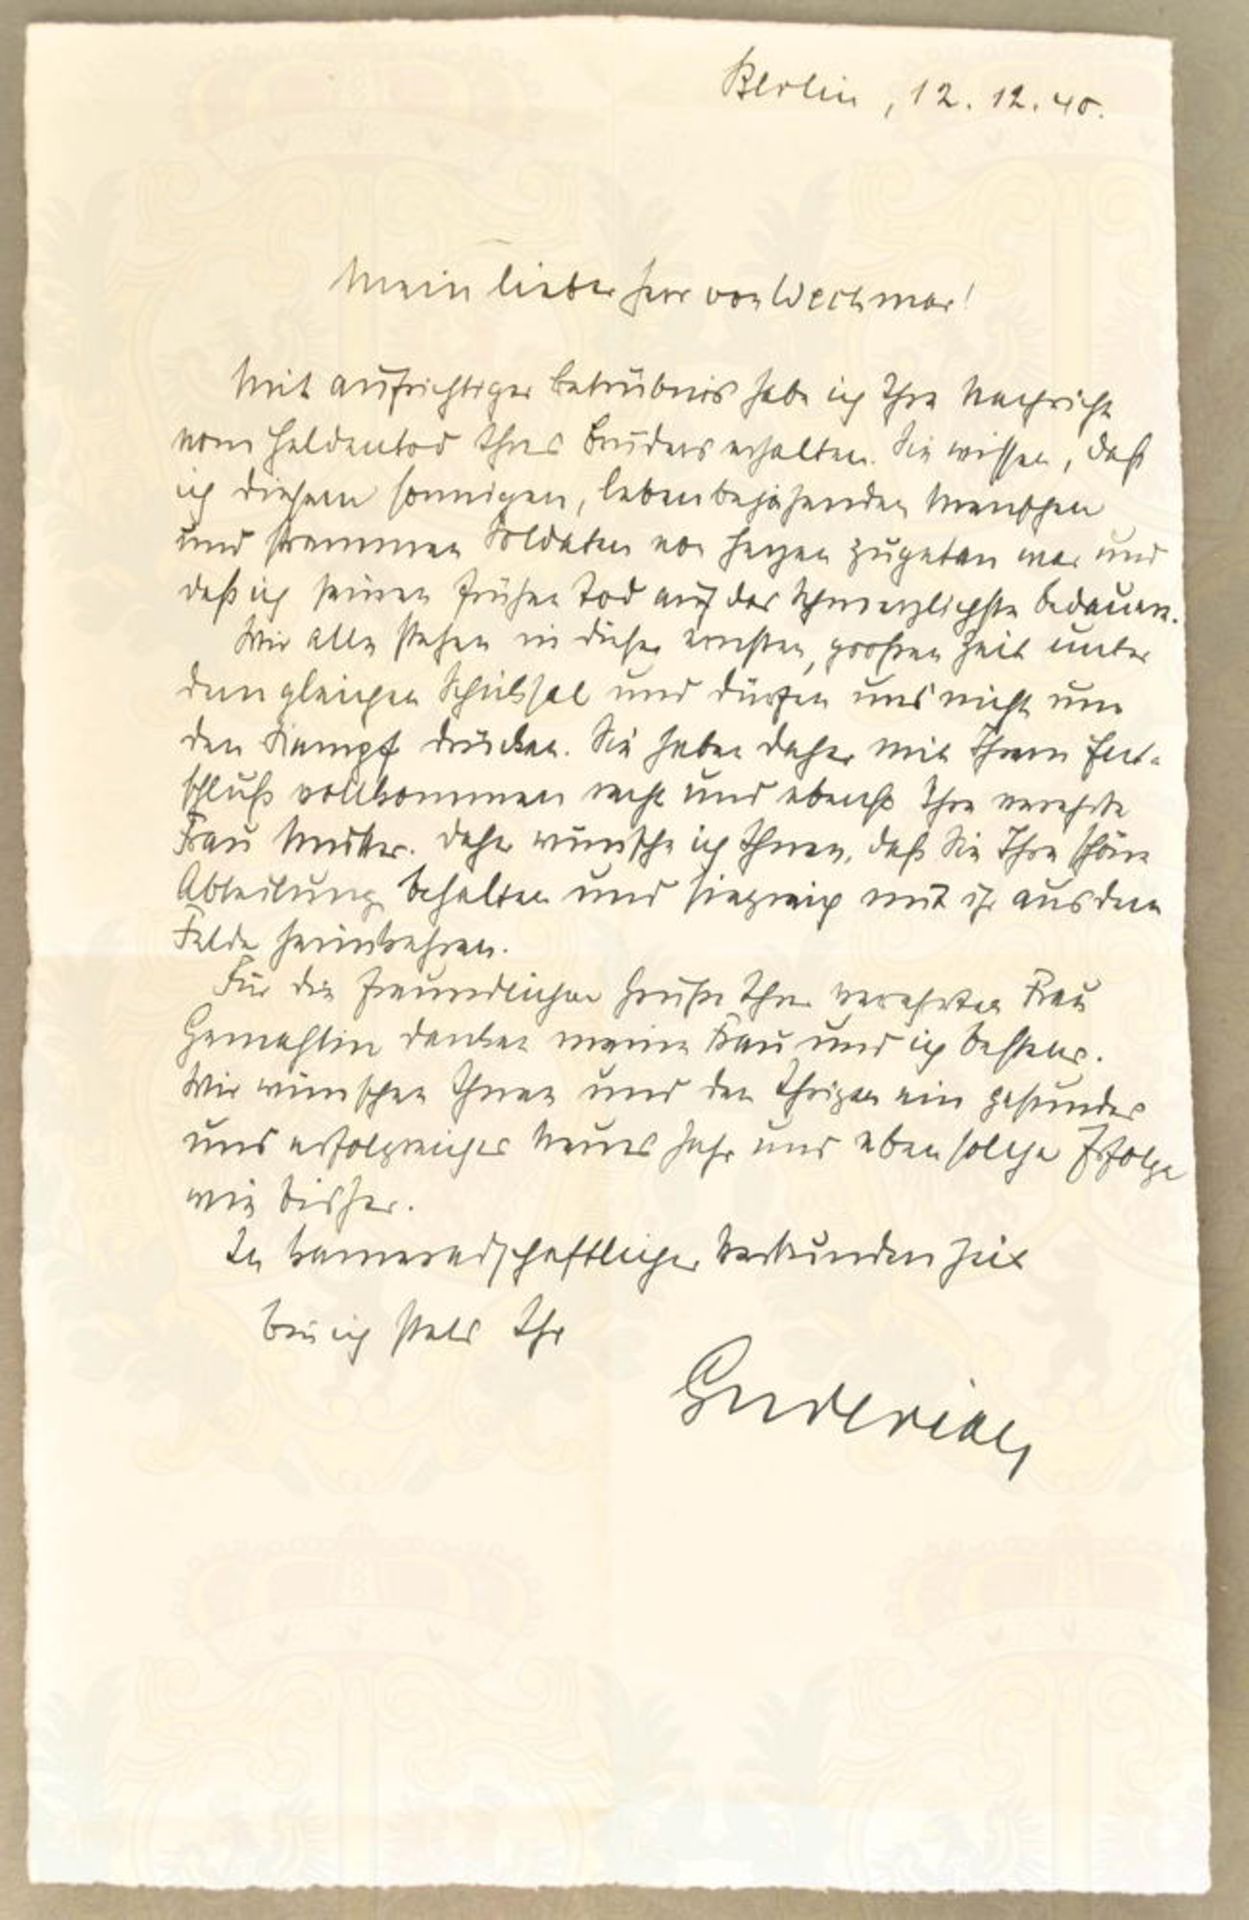 Berlin, 12. 12. 40.
Mein lieber Herr von Wechmar!
Mit aufrichtiger Betrübnis habe ich Ihre Nachricht
vom Heldentod Ihres Bruders erhalten. Sie wissen, daß
ich diesem sonnigen, lebenbejahenden Menschen
und strammen Soldaten von Herzen zugetan war und
daß ich seinen frühen Tod auf das Schmerzlichste bedauere.
Wir alle stehen in dieser ernsten, großen Zeit unter
dem gleichen Schicksal und dürfen uns nicht um
den Kampf drücken. Sie haben daher mit Ihrem Ent-
schluß vollkommen recht und ebenso Ihre verehrte
Frau Mutter. Daher wünsche ich Ihnen, daß Sie Ihre schöne
Abteilung behalten und siegreich mit ihr aus dem
Felde heimkehren.
Für die freundlichen Grüße Ihrer verehrten Frau
Gemahlin danken meine Frau und ich bestens.
Wir wünschen Ihnen und den Ihrigen ein gesundes
und erfolgreiches Neues Jahr und eben solche Erfolge
wie bisher.
In kameradschaftlicher Verbundenheit
bin ich stets Ihr
Guderian